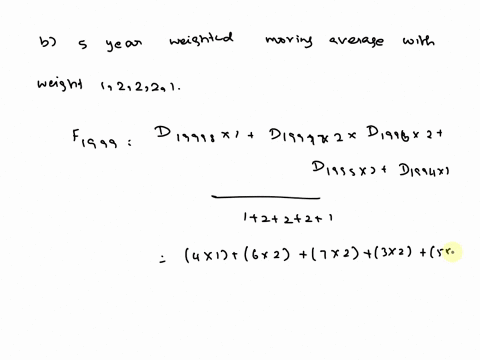 b) 5 year weighted moving average with
weight 1,2,2,2,1.
F1999 : D1998 x 1 + D1997 x 2 x D1996 x 2 +
D1995 x 2 + D1994 x 1
1+2+2+2+1
= (4x1) + (6x2) + (7x2) + (3x2) + (5x